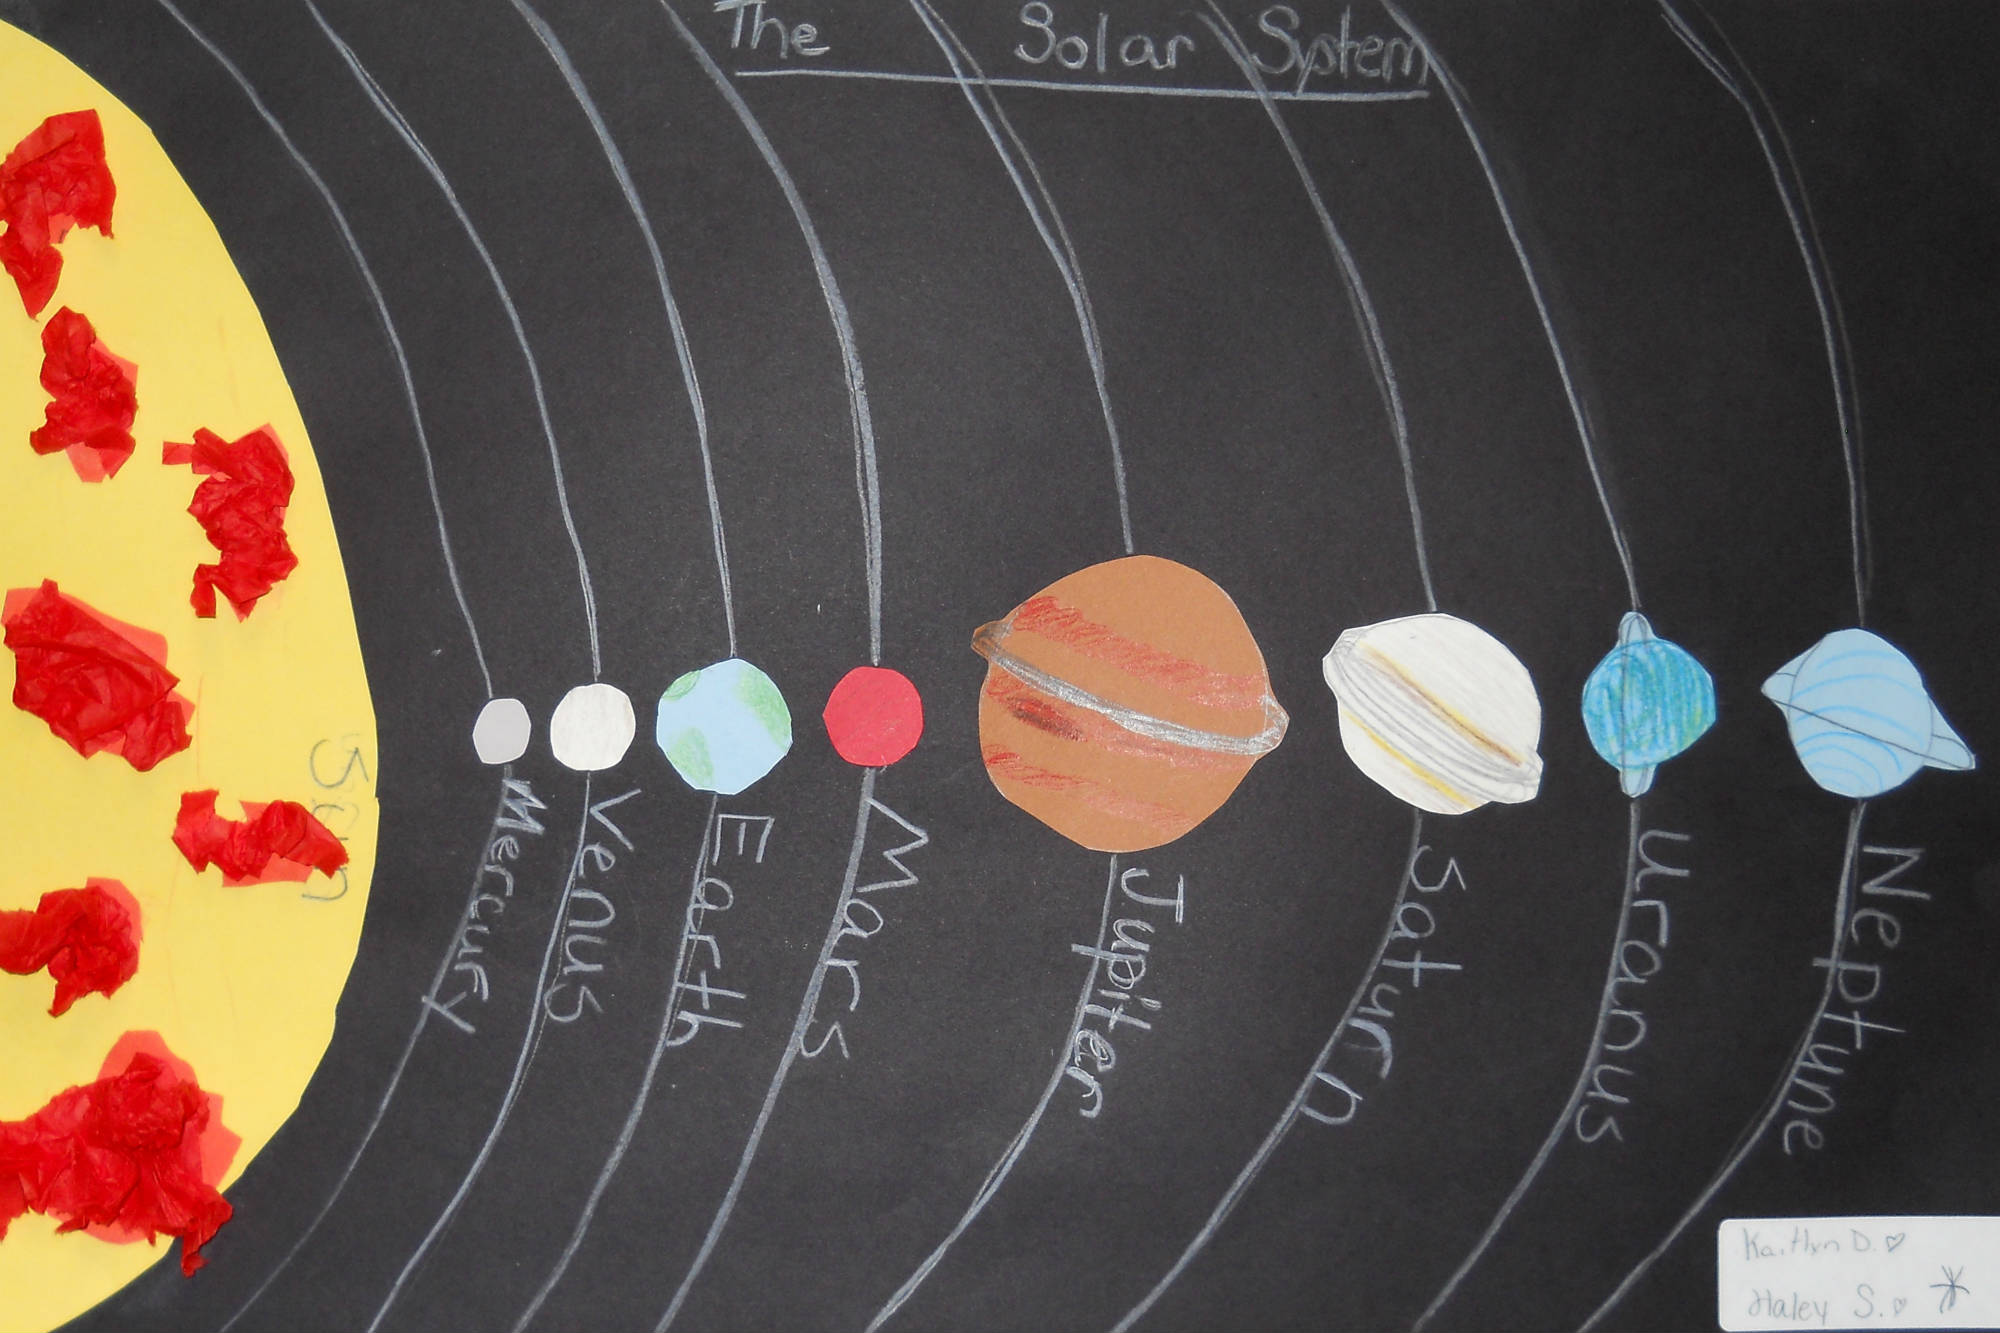 The Solar System
Sun
Mercury
Venus
Earth
Mars
Jupiter
Saturn
Uranus
Neptune
Kaitlyn D.
Haley S.